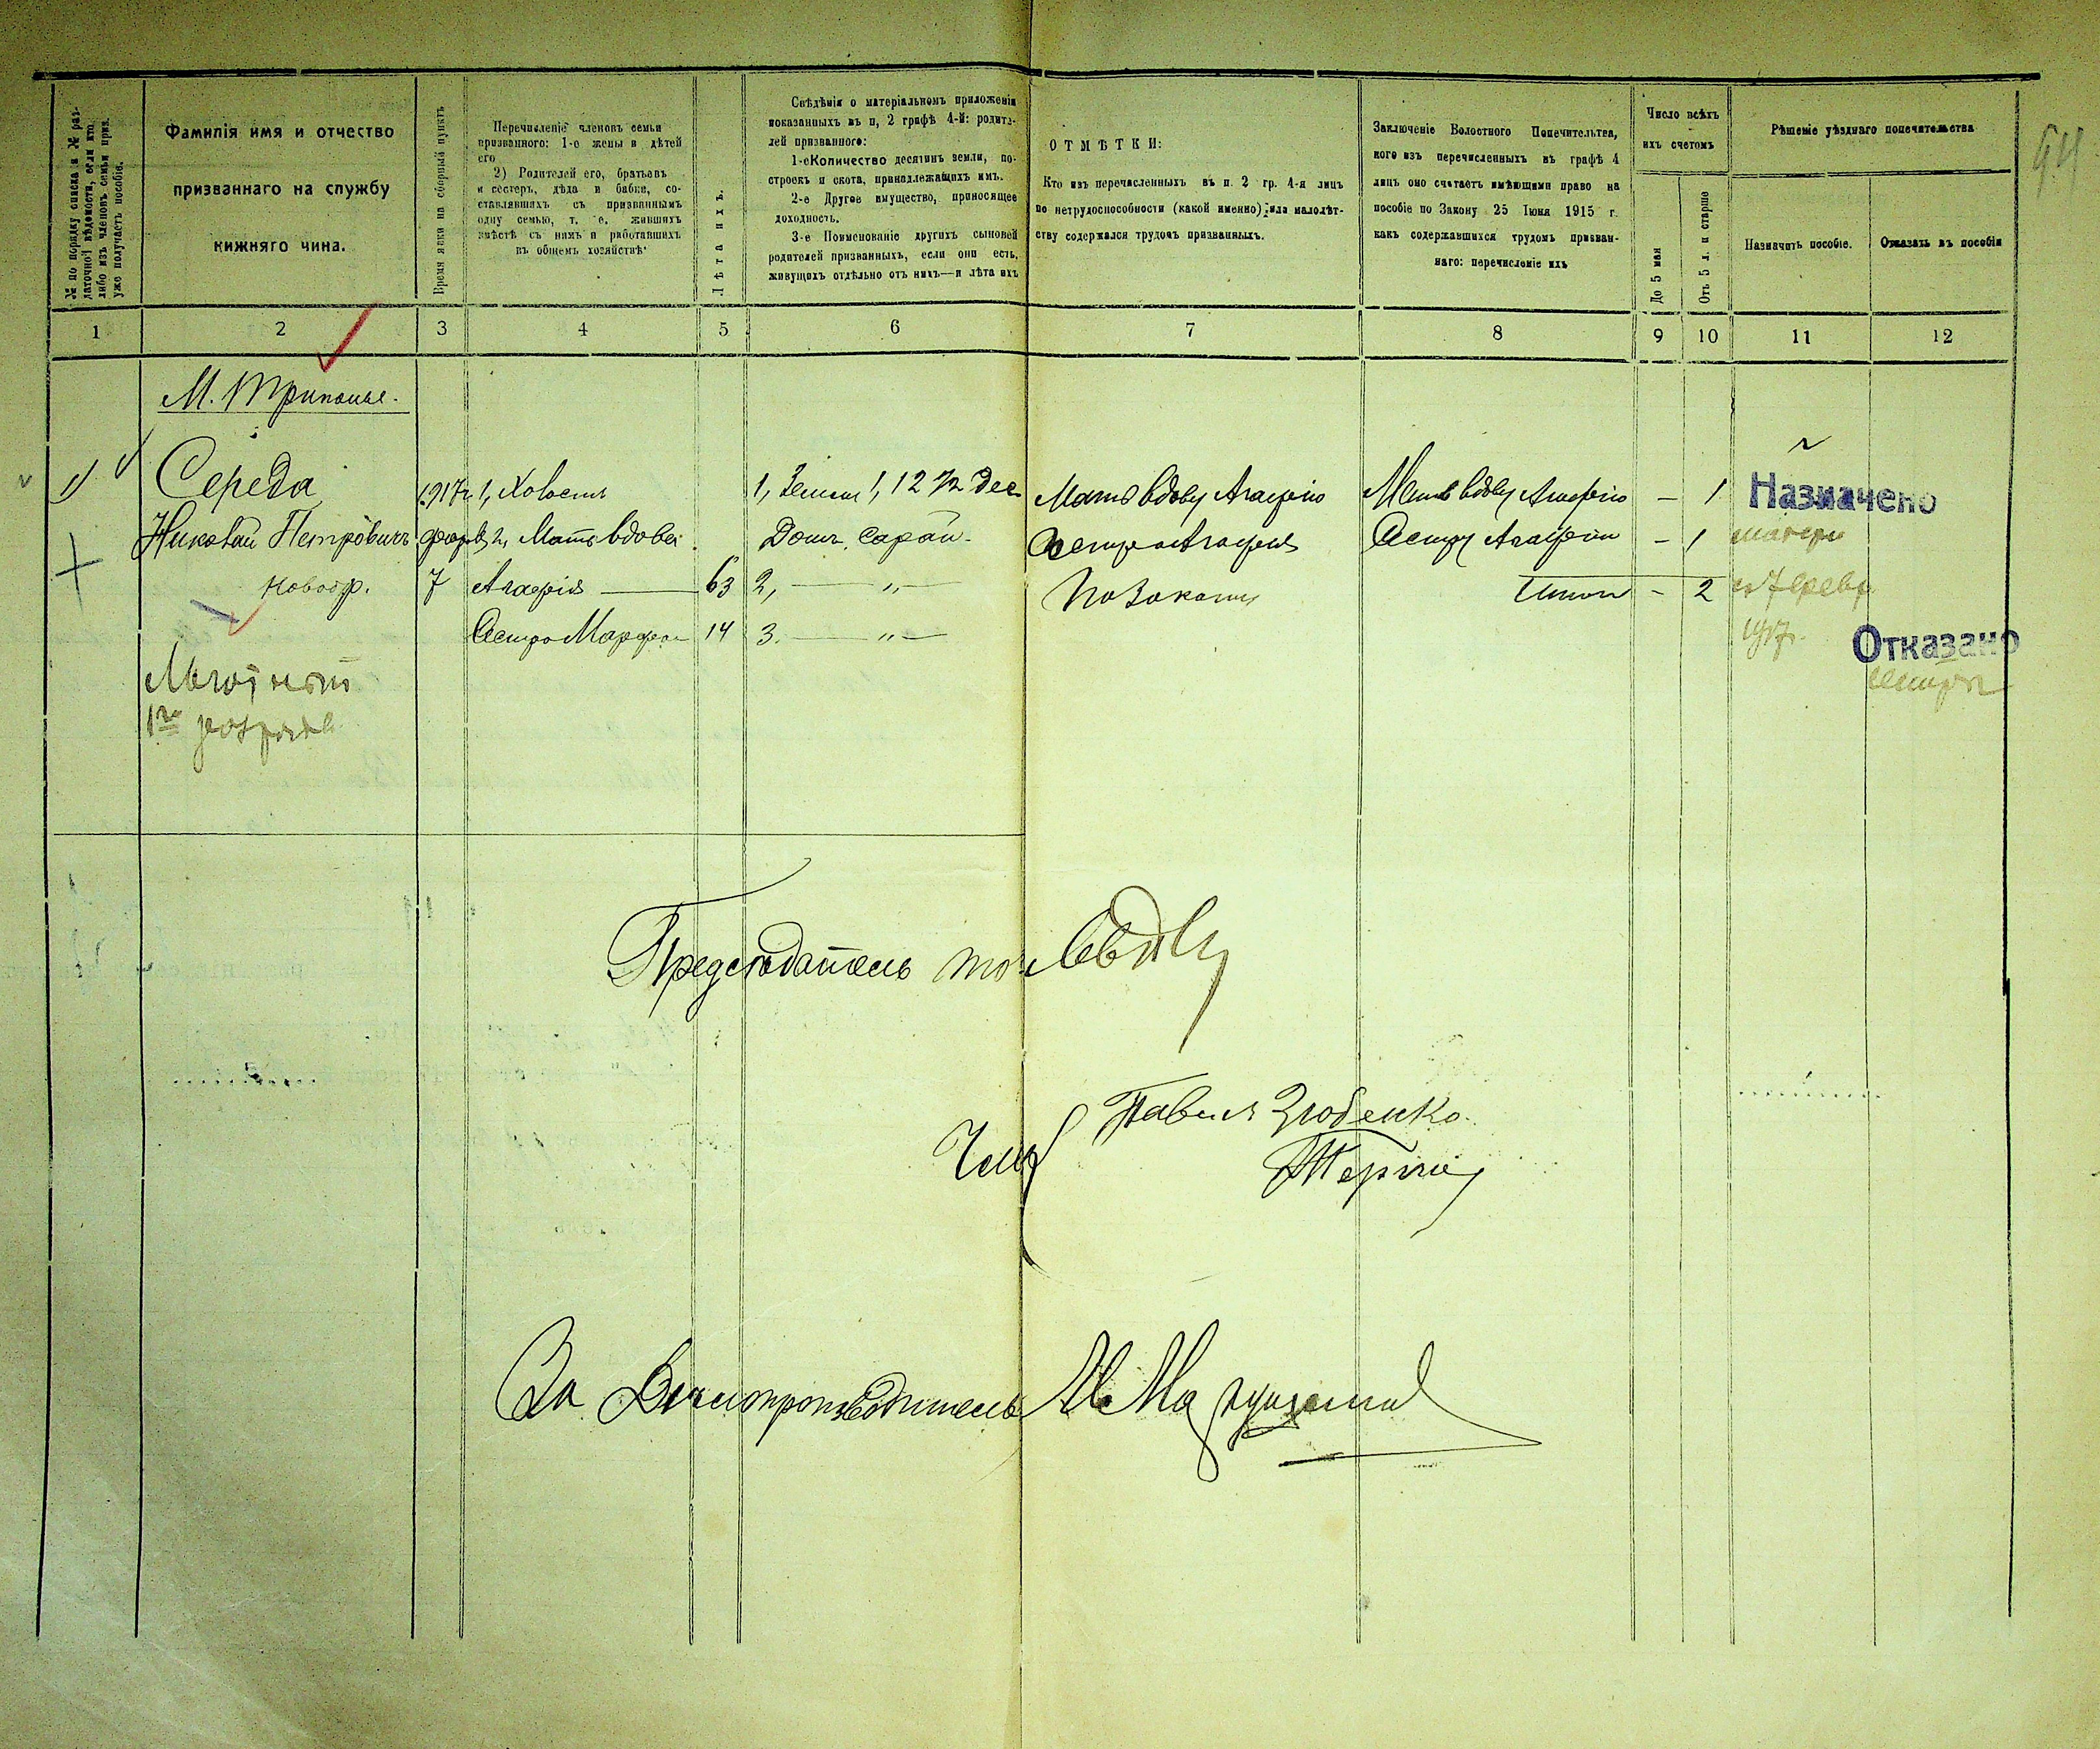 № по порядку списка и № раз-
даточной вѣдомости, если кто
либо изъ членовъ семьи приз.
уже получаетъ пособіе.
Фамилія имя и отчество
призваннаго на службу
нижняго чина.
Время явки на сборный пунктъ
Перечисленіе членовъ семьи
призванного: 1-е жены и дѣтей
его
2) Родителей его, братьевъ
и сестеръ, дѣда и бабки, со-
ставлявшихъ съ призваннымъ
одну семью, т. е. жившихъ
вмѣстѣ съ нимъ и работавшихъ
въ общемъ хозяйствѣ
Лѣта ихъ.
Свѣдѣнія о матеріальномъ приложеніи
показанныхъ въ п, 2 графѣ 4-й: родите-
лей призванного:
1-е Количество десятинъ земли, по-
строекъ и скота, принадлежащихъ имъ.
2-е Другое имущество, приносящее
доходность.
3-е Поименованіе другихъ сыновей
родителей призванныхъ, если они есть,
живущихъ отдѣльно отъ нихъ—и лѣта ихъ
ОТМѢТКИ:
Кто изъ перечисленныхъ въ п. 2 гр. 4-я лицъ
по нетрудоспособности (какой именно) или малолѣт-
ству содержался трудомъ призванныхъ.
Заключеніе Волостного Попечительтва,
кого изъ перечисленныхъ въ графѣ 4
лицъ оно считаетъ имѣющими право на
пособіе по Закону 25 Іюня 1915 г.
какъ содержавшихся трудомъ призван-
наго: перечисленіе ихъ
Число всѣхъ
ихъ счетомъ
До 5 мая
Отъ 5 л. и старше
Рѣшеніе уѣзднаго попечительства
Назначить пособіе.
Отказать въ пособіи
94
1 2 3 4 5 6 7 8 9 10 11 12
М. Триполье.
1) Середа 1917г. 1, Холостъ 1, Земли 1, 12 1/2 Дес Мать вдову Агафію Мать вдову Агафію — 1 Назначено
Николай Петровичъ февр. 2, Мать вдова Домъ, сарай. Сестра Агафія Сестру Агафію — 1 матери
Новобр. 7 Агафія — 63 2, — „ — По Закону Итого — 2 съ 7 февр
Сестра Марфа 14 3. — „ — 1917г. Отказано
Льготный сестрѣ
1го разряда
Предсѣдатель
Члены Павелъ Зюбенко.
За Дѣлопроизводитель